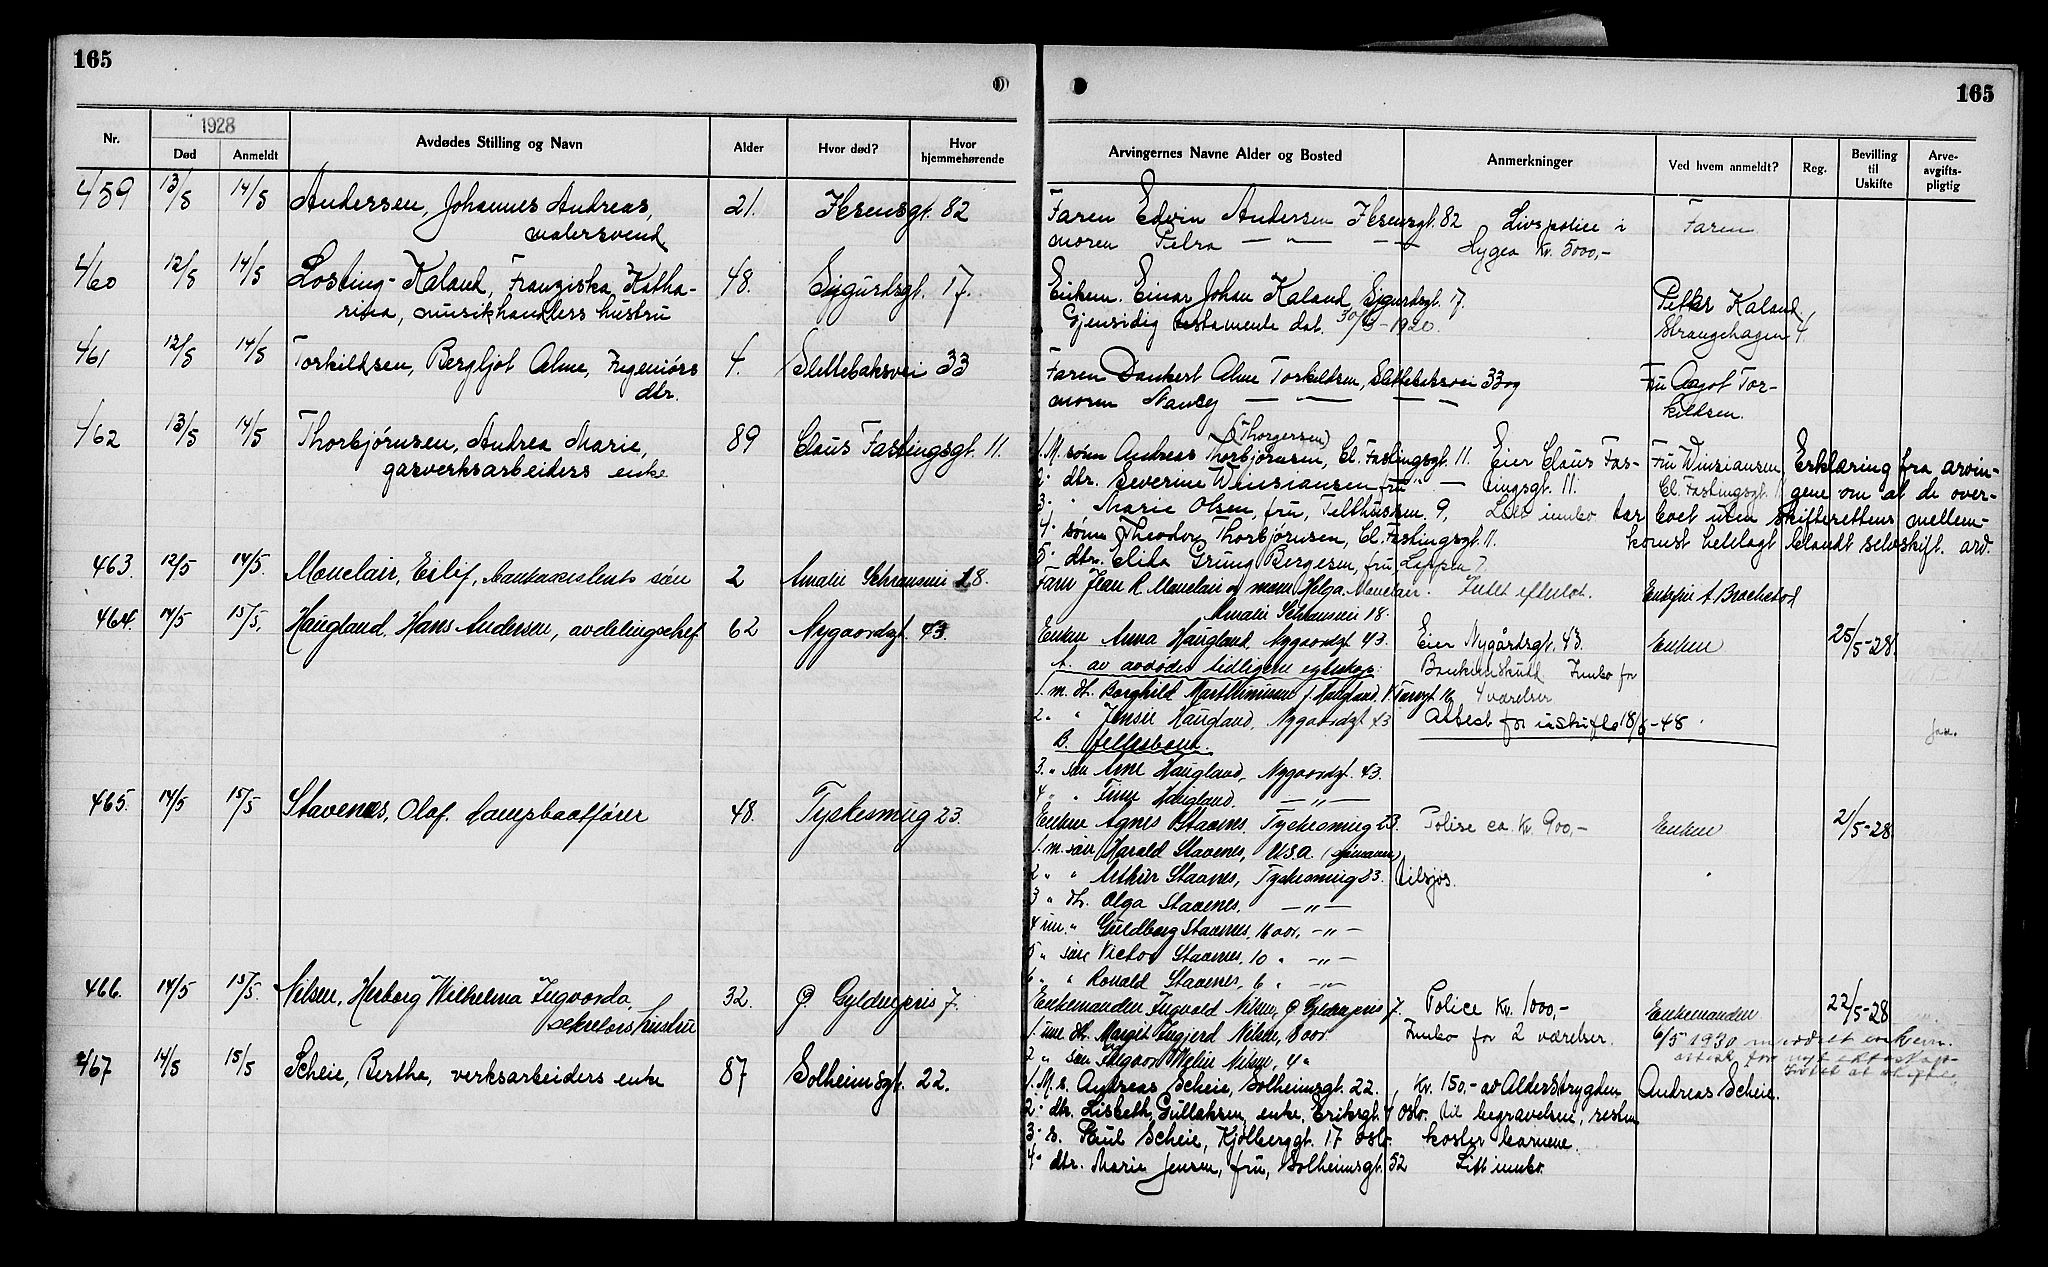 165
Nr.
1928
Død
Anmeldt
Avdødes Stilling og Navn
Alder
Hvor død?
Hvor
hjemmehørende
459 13/5 14/5 Andersen, Johannes Andreas, 21. Ibsensgt. 82
malersvend
460 12/5 14/5 Losting-Kaland, Franziska Katha- 48. Sigurdsgt. 17.
rina, musikhandlers hustru
461 12/5 14/5 Torkildsen, Bergljot Alme, Ingeniørs 4. Slettebaksvei 33
dtr.
462 13/5 14/5 Thorbjørnsen, Andrea Marie, 89 Claus Fastingsgt. 11.
gasverksarbeiders enke
463. 12/5 14/5. Monclair, Eilif, søn 2 Amalie Schramsvei 18.
464. 14/5 15/5. Haugland, Hans Andersen, avdelingschef 62 Nygaardsgt. 43.
465. 14/5 15/5 Stavenes, Olof. dampbaatfører 48. Tyskesmug 23.
466. 14/5 15/5. Nilsen, Herborg Wilhelmа Ingvarda, 32. Ø. Gyldenpris 7.
sekretærs hustru
467 14/5 15/5 Scheie, Berthe, verksarbeiders enke 87 Solheimsgt. 22.
165
Arvingernes Navne Alder og Bosted
Anmerkninger
Ved hvem anmeldt?
Reg.
Bevilling
til
Uskifte
Arve-
avgifts-
pligtig
Faren Edvin Andersen Ibsensgt. 82 Livspolice i Faren
moren Petra — " — — " — Hygea Kr. 5000,-
Enkem. Einar Johan Kaland, Sigurdsgt. 17. Petter Kaland
Gjensidig testamente dat. 30/9-1920. Strangehagen 4.
Faren Dankert Alme Torkildsen, Slettebaksvei 33 og Fru Aagot Tor-
moren Nancy — " — — " — kildsen.
(Thorgersen)
1. M. søn Andreas Thorbjørnsen, Cl. Fastingsgt. 11. Eier Claus Fas- Fru Winsiansen Erklæring fra arvin-
2" dtr. Severine Winsiansen fru " — tingsgt. 11. Cl. Fastingsgt. 11 gene om at de over-
3" " Marie Olsen, fru, Telthussm. 9, Litt innbo tar boet uten skifterettens mellem-
4" sønn Theodor Thorbjørnsen, Cl. Fastingsgt. 11. komst henlagt blandt selvskift. arv.
5" dtr. Elida Grung Bergesen, fru, Lappen 7.
Faren Jean R. Monclair og moren Helga Monclair. Intet efterlat. Enkefru A. Brochstad
Amalie Schramsvei 18.
Enken Anna Haugland Nygaardsgt 43. Eier Nygårdsgt. 43. Enken 25/5-28.
A. av avdødes tidligere egteskap: Innbo for
1. m. dt. Borghild Marthinussen f. Haugland, 16 4 værelser
2 " " Jensie Haugland, Nygaardsgt 43 Attest for uskifte 18/6-48. jaa.
B. fellesbarn.
3. " søn Arne Haugland, Nygaardsgt. 43.
4 " " Finn Haugland, — " —
Enken Agnes Stavenes, Tyskesmug 23. Polise ca. Kr. 900,- Enken 21/5-28.
1. m. søn Harald Stavenes, U.S.A. (sjømann)
2 " " Arthur Stavenes, Tyskesmug 23. tilsjøs.
3 " dt. Olga Stavenes, — " —
4 um. " Guldborg Stavenes, 16 aar, — " —
5 " søn Victor Stavenes, 10 " — " —
6 " " Ronald Stavenes, 6 " — " —
Enkemanden Ingvald Nilsen, Ø Gyldenpris 7. Police Kr. 1000,- Enkemanden 22/5-28
1. um dt. Margit Ingjerd Nilsen, 8 aar. Innbo for 2 værelser. 6/5 1930 meddelt enkem.
2 " søn Nilsen, 4 " attest for nyt ekteskap
1. M. s. Andreas Scheie, Solheimsgt. 22. Kr. 150,- av Alderstrygden Andreas Scheie.
2" dtr. Lisbeth Gullaksen, enke, Eriksgt. 4 Oslo. til begravelsen, resten
3" s. Paul Scheie, Kjølberggt. 17 Oslo. koster barnene.
4" dtr. Marie Jensen, fru, Solheimsgt. 52 Litt innbo